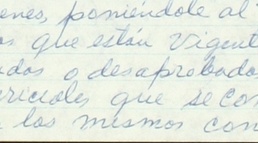 enes, poniéndole al
os que están vigent
ados o desaprobados
ericiales que se con
los mismos con